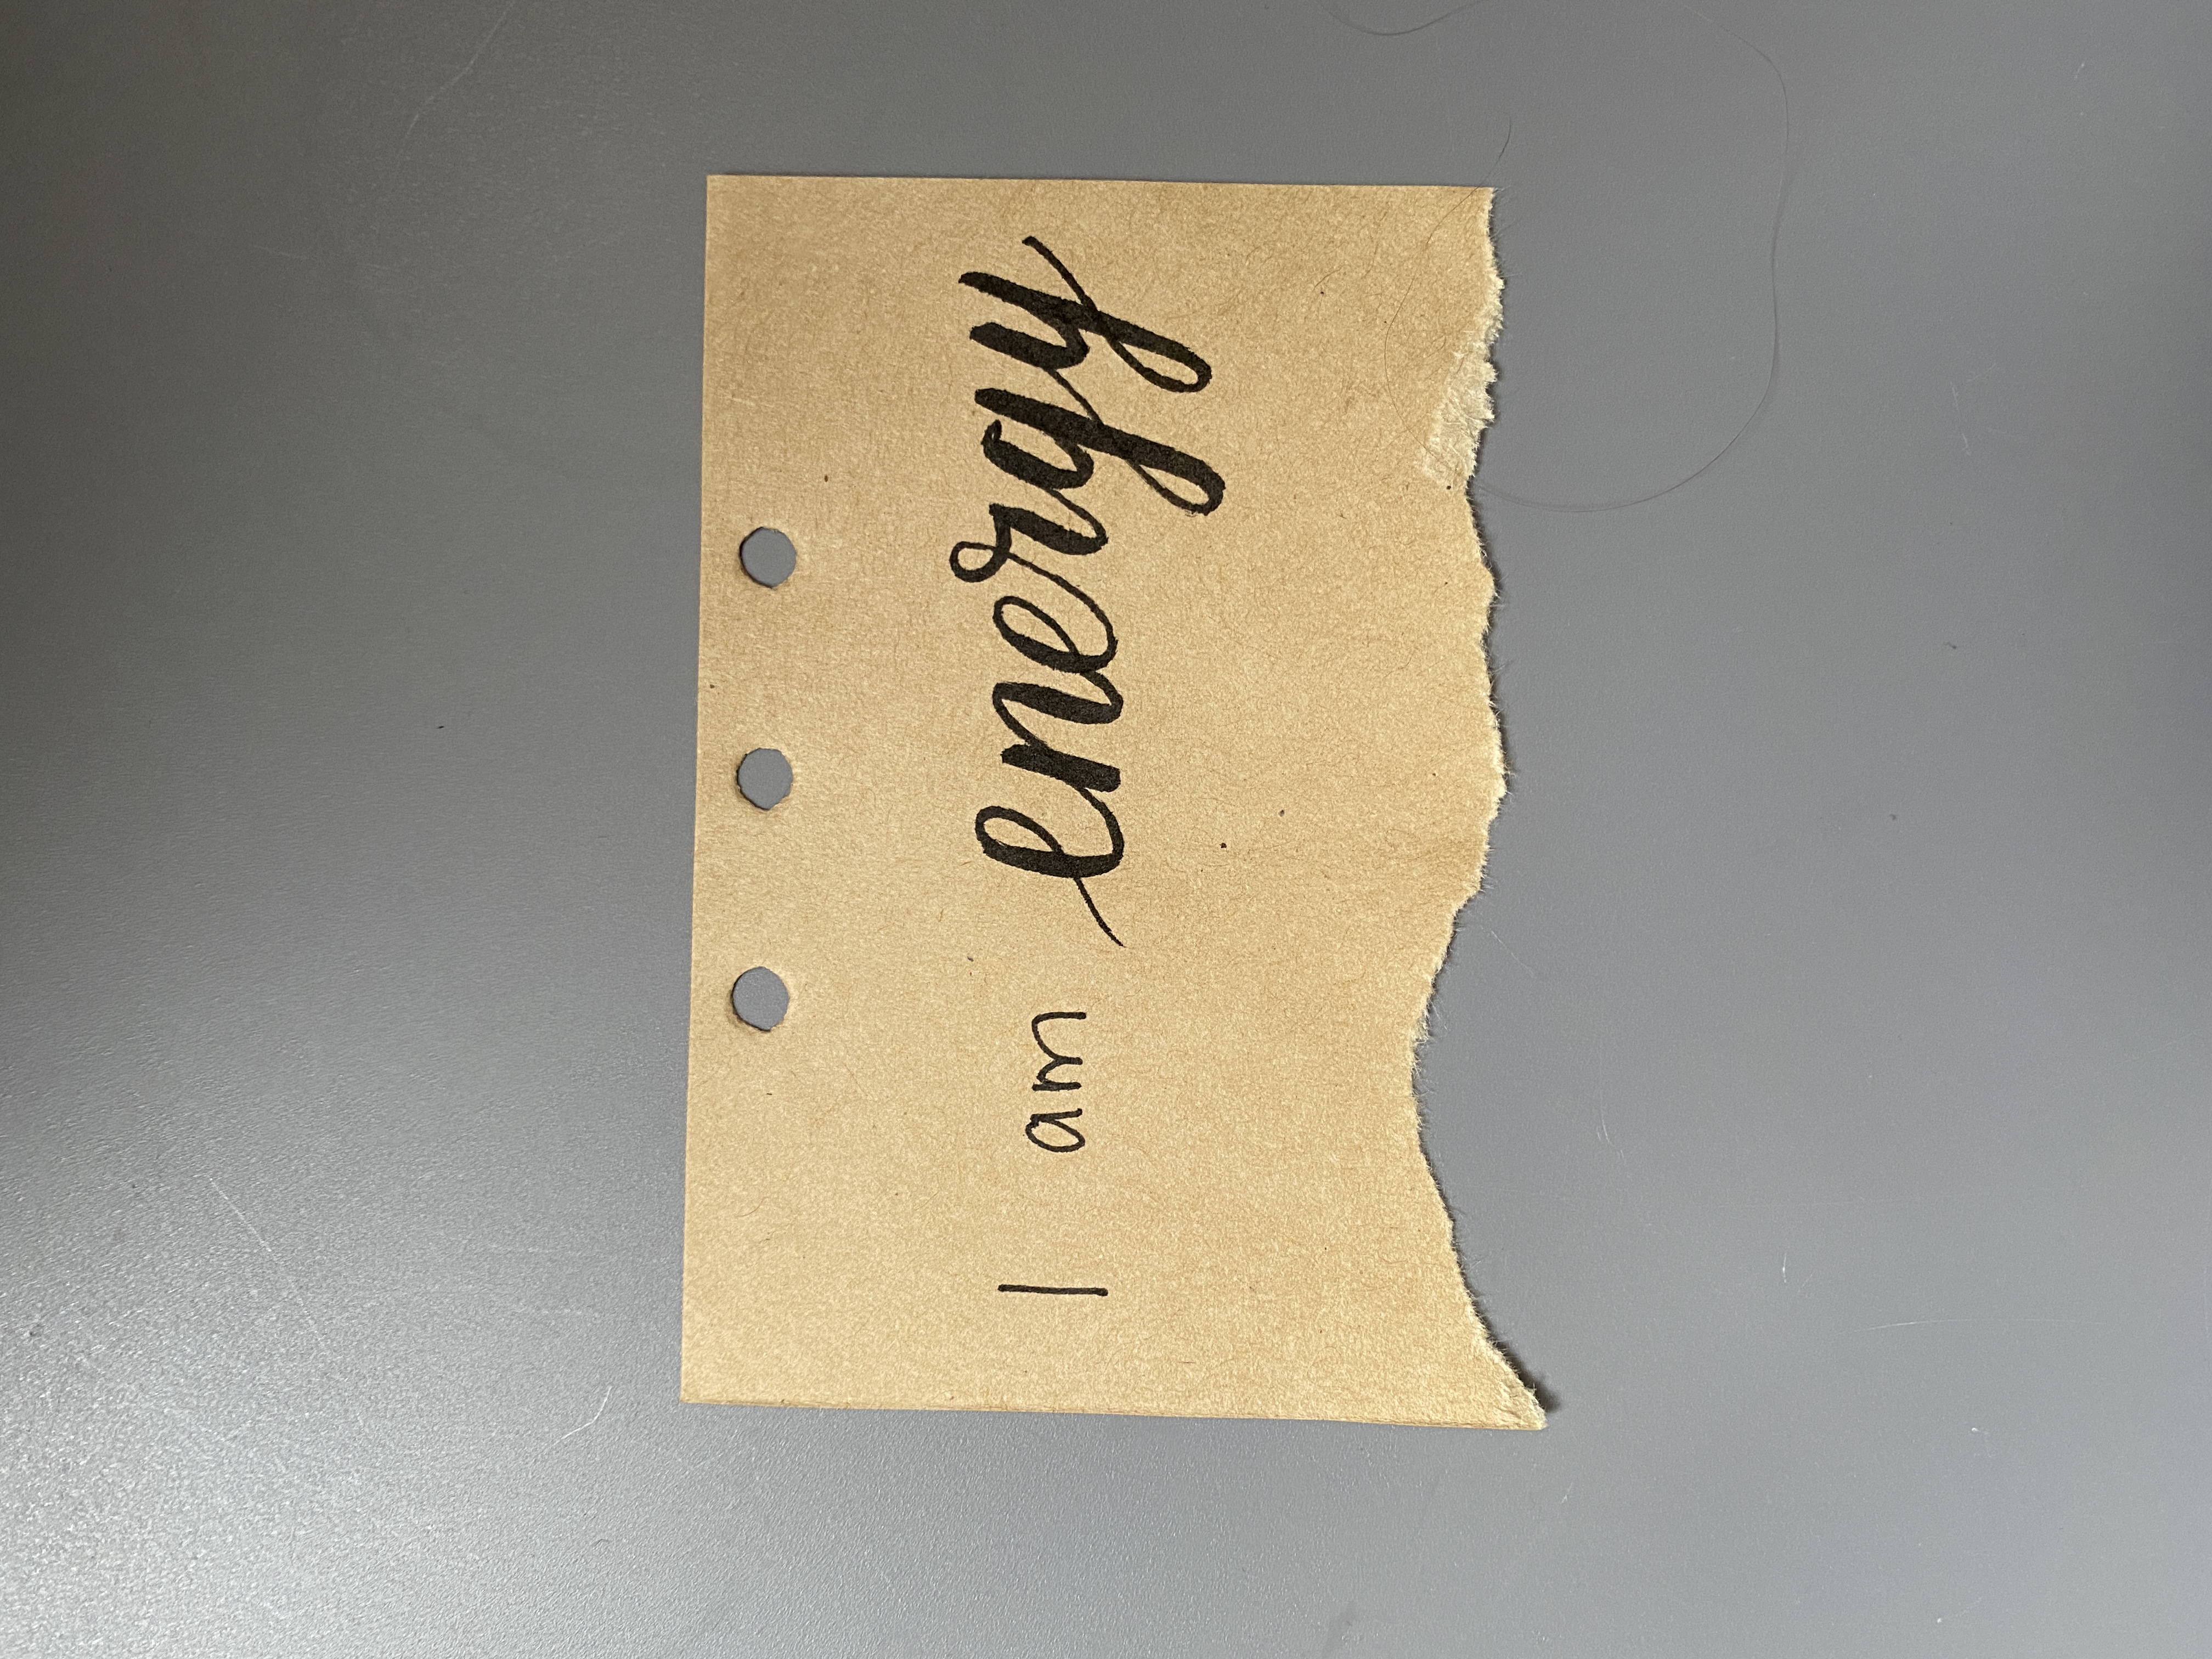 I am energy